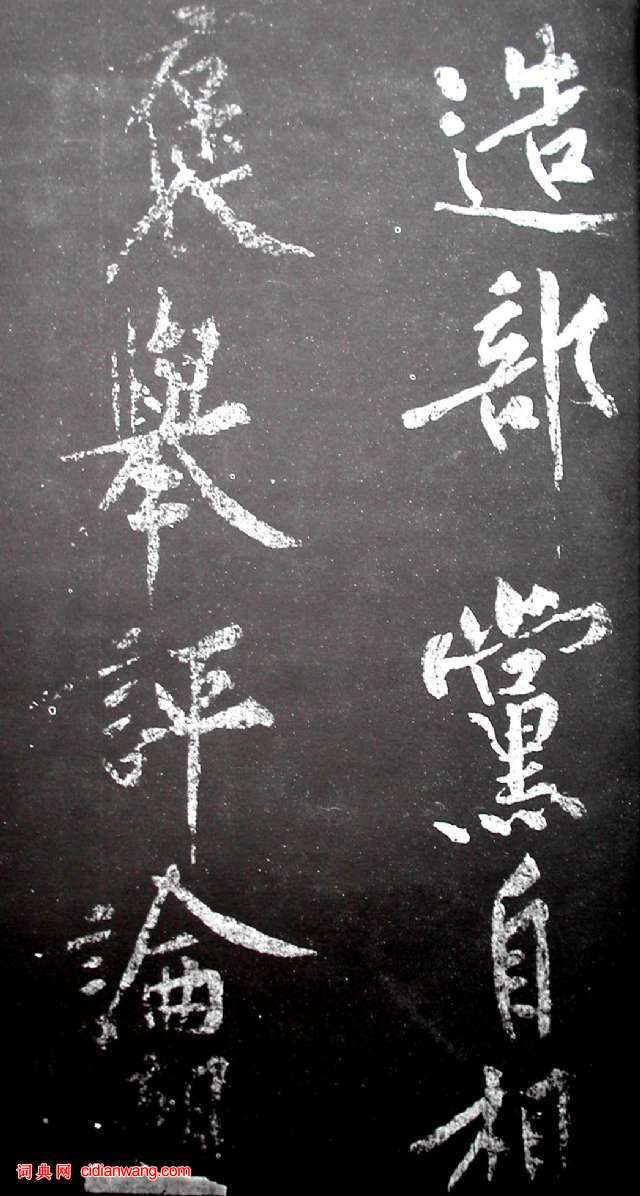 造部黨自相
褒舉評論朝
词典网 cidianwang.com